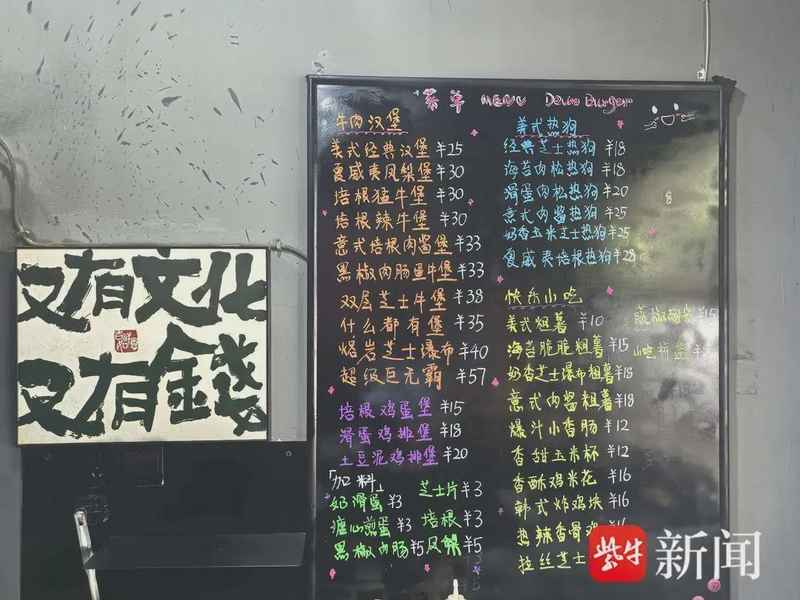 又有文化
又有金錢
菜单 MENU Dewu Burger
牛肉汉堡
美式经典汉堡 ¥25
夏威夷凤梨堡 ¥30
培根猛牛堡 ¥30
培根辣牛堡 ¥30
意式培根肉酱堡 ¥33
黑椒肉肠重牛堡 ¥33
双层芝士牛堡 ¥38
什么都有堡 ¥35
熔岩芝士瀑布 ¥40
超级巨无霸 ¥57
培根鸡蛋堡 ¥15
滑蛋鸡排堡 ¥18
土豆泥鸡排堡 ¥20
「加料」
奶滑蛋 ¥3 芝士片 ¥3
溏心煎蛋 ¥3 培根 ¥3
黑椒肉肠 ¥5 凤梨 ¥5
美式热狗
经典芝士热狗 ¥18
海苔肉松热狗 ¥18
滑蛋肉松热狗 ¥20
意式肉酱热狗 ¥25
奶香玉米芝士热狗 ¥25
夏威夷培根热狗 ¥28
快乐小吃
美式粗薯 ¥10
海苔脆脆粗薯 ¥15
奶香芝士瀑布粗薯 ¥18
意式肉酱粗薯 ¥18
爆汁小香肠 ¥12
香甜玉米杯 ¥12
香酥鸡米花 ¥16
韩式炸鸡块 ¥16
热辣香骨鸡 ¥16
拉丝芝士
¥15
紫牛新闻